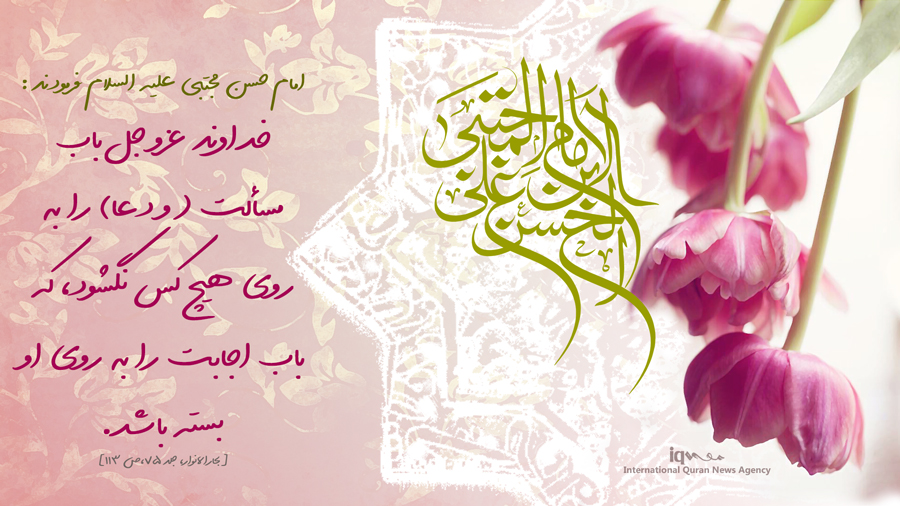 امام حسن مجتبی علیه السلام فرمودند :
خداوند عزوجل باب
مسألت (و دعا) را به
روی هیچ کس نگشود، که
باب اجابت را به روی او
بسته باشد.
[بحارالانوار، جلد ۷۵، ص ۱۱۳]
الامام المجتبی
الحسن ابن علی
iqna
International Quran News Agency